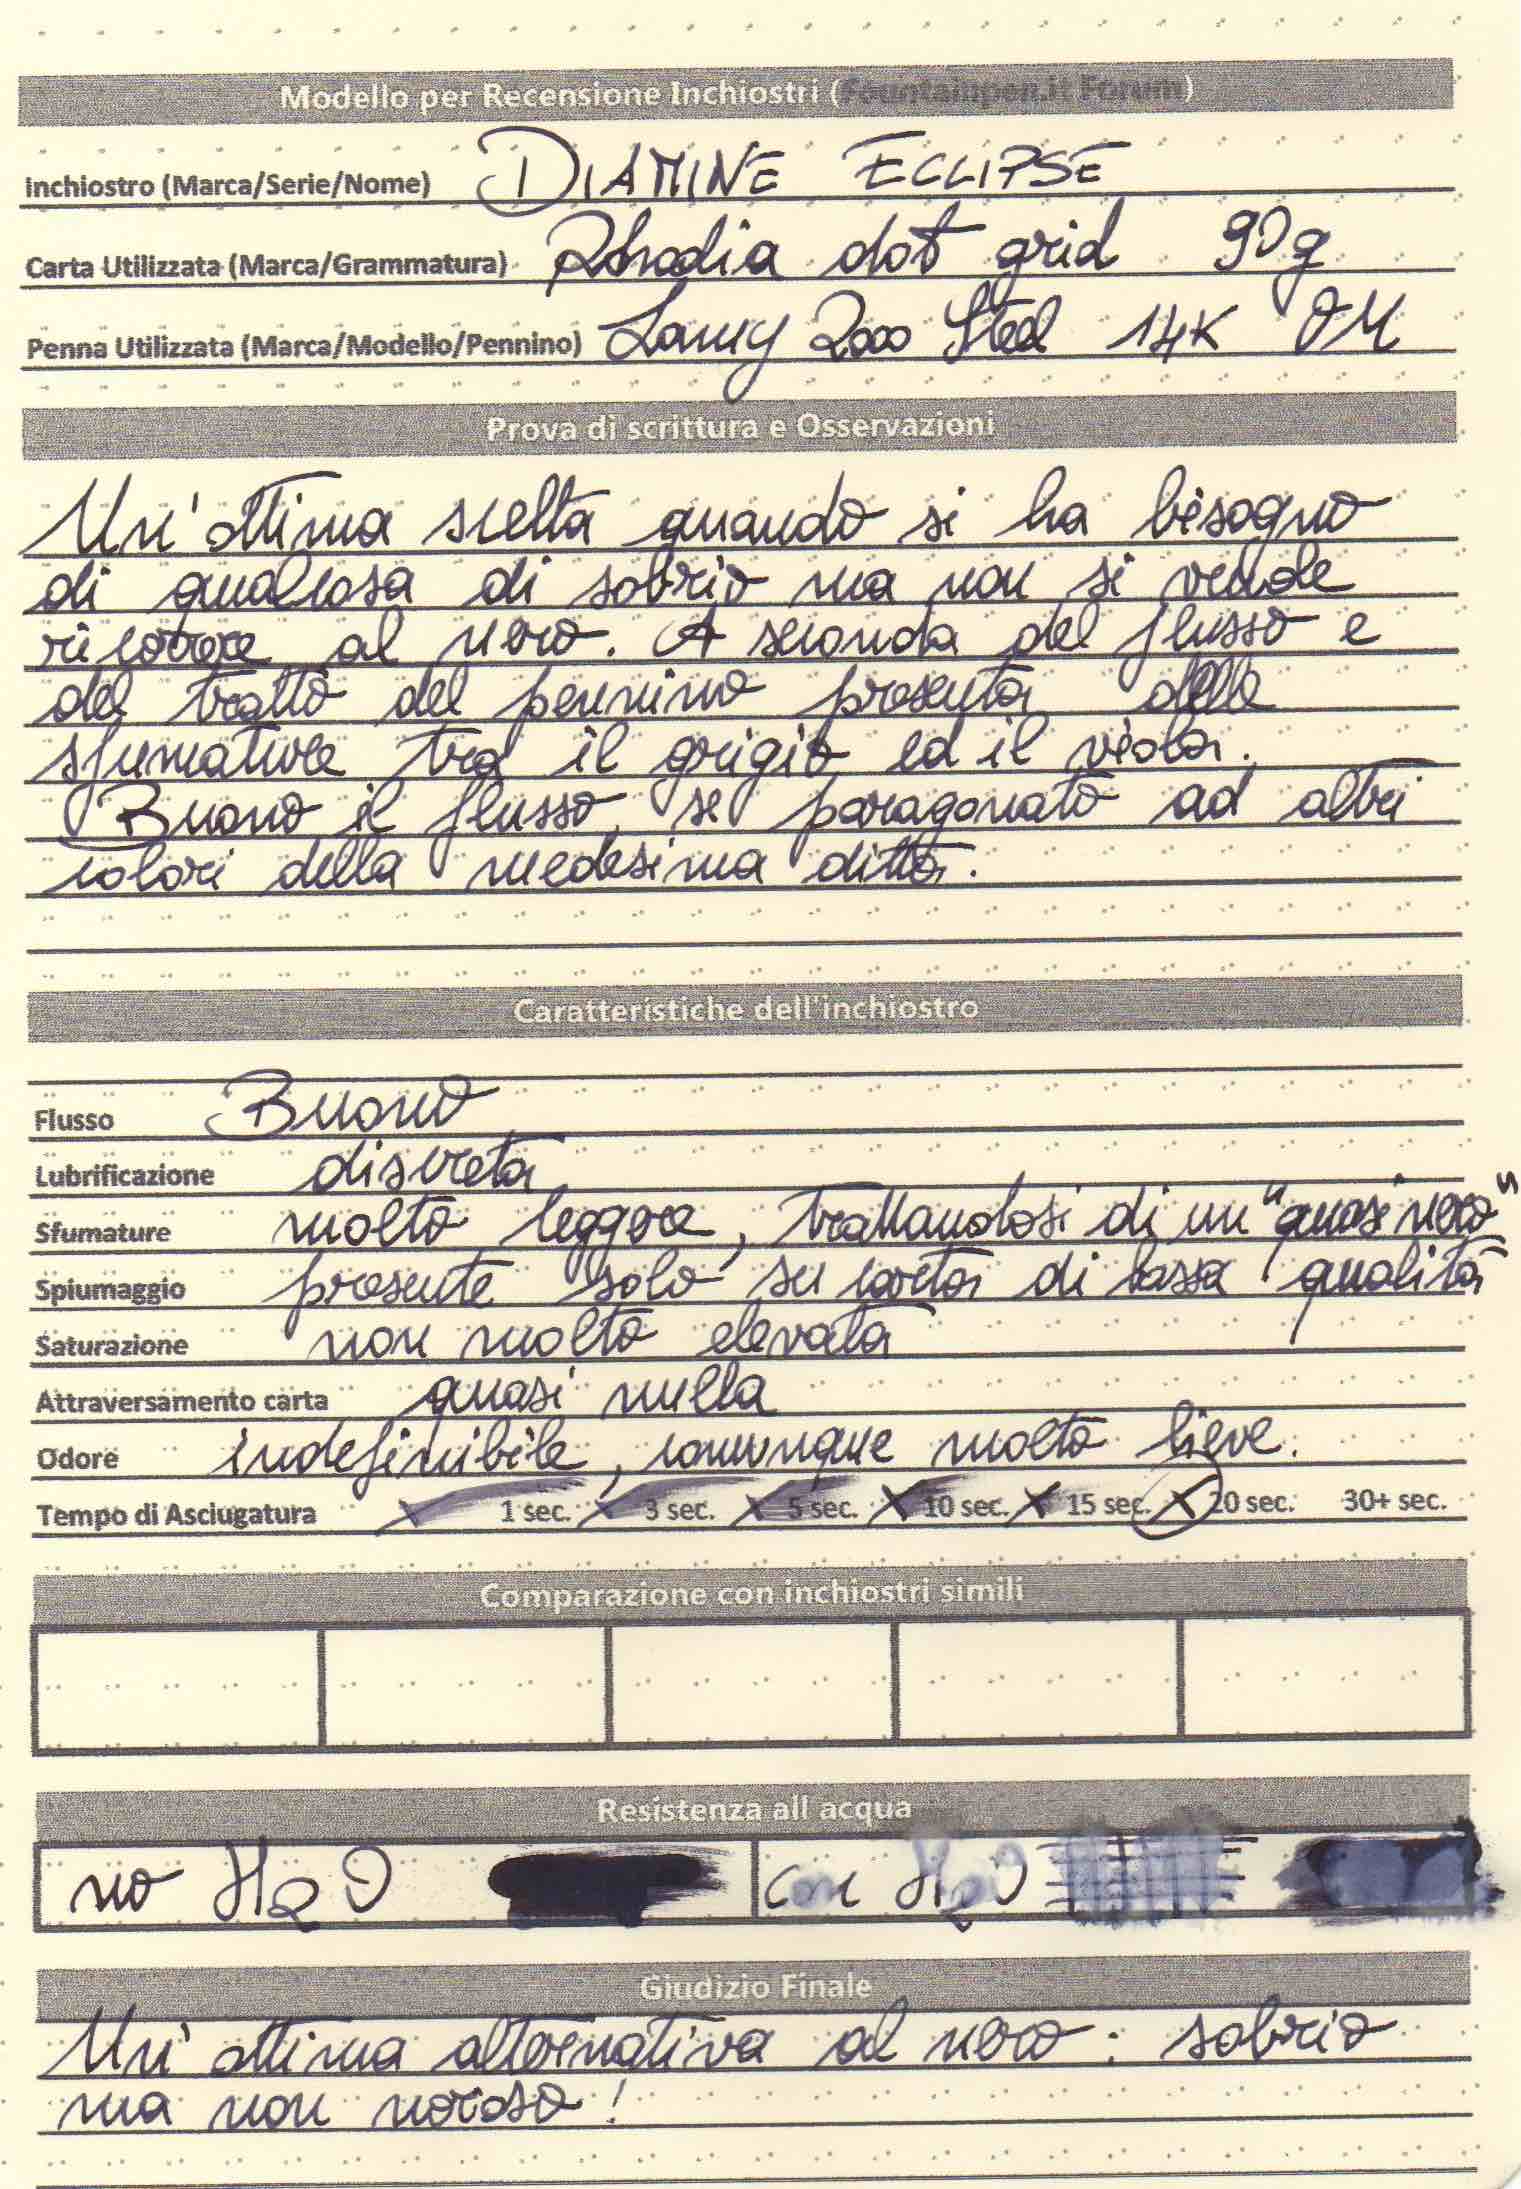 Modello per Recensione Inchiostri (Fountainpen.it Forum)
Inchiostro (Marca/Serie/Nome) DIAMINE ECLIPSE
Carta Utilizzata (Marca/Grammatura) Rhodia dot grid 90g
Penna Utilizzata (Marca/Modello/Pennino) Lamy 2000 Steel 14K OM
Prova di scrittura e Osservazioni
Un'ottima scelta quando si ha bisogno
di qualcosa di sobrio ma non si vuole
ricorrere al nero. A seconda del flusso e
del tratto del pennino presenta delle
sfumature tra il grigio ed il viola.
Buono il flusso, se paragonato ad altri
colori della medesima ditta.
Caratteristiche dell'inchiostro
Flusso Buono
Lubrificazione discreta
Sfumature molto leggere, trattandosi di un "quasi nero"
Spiumaggio presente solo su carta di bassa qualità
Saturazione non molto elevata
Attraversamento carta quasi nulla
Odore indefinibile, comunque molto lieve.
Tempo di Asciugatura X 1 sec. X 3 sec. X 5 sec. X 10 sec. X 15 sec. X 20 sec. 30+ sec.
Comparazione con inchiostri simili
Resistenza all acqua
no H2O con H2O
Giudizio Finale
Un'ottima alternativa al nero: sobrio
ma non noioso!